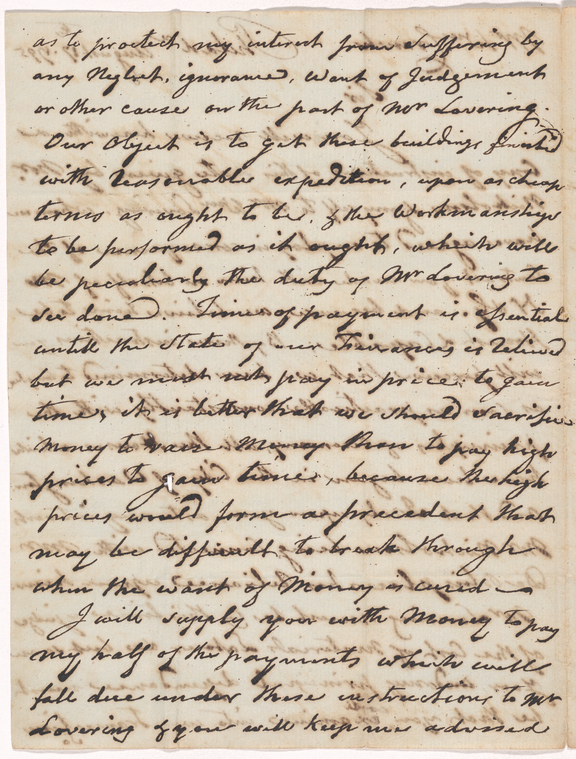 as to protect my interest from suffering by
any Neglect, ignorance, want of Judgement
or other cause on the part of Mr Lovering.
Our Object is to get these buildings finished
with reasonable expedition, upon as cheap
terms as ought to be, & the Workmanship
to be performed as it ought, which will
be peculiarly the duty of Mr Lovering to
see done. Time of payment is essential
untill the State of our Finances is relieved
but we must not pay in price, to gain
time, it is better that we should sacrifice
Money to raise Money than to pay high
prices to gain time, because the high
prices would form a precedent that
may be difficult to break through
when the want of Money is cured —
I will supply you with Money to pay
my half of the payments which will
fall due under these instructions to Mr
Lovering & you will keep me advised